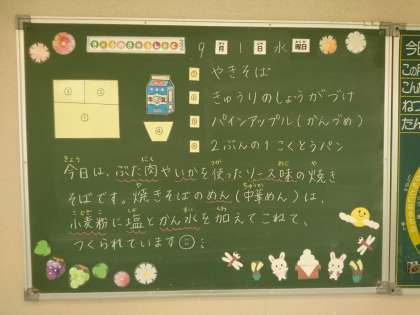 きょうのきゅうしょく
9月1日水曜日
① やきそば
② きゅうりのしょうがづけ
③ パインアップル(かんづめ)
④ 2ぶんの1こくとうパン
今日は、ぶた肉やいかを使ったソース味の焼き
そばです。焼きそばのめん(中華めん)は、
小麦粉に塩とかん水を加えてこねて、
つくられています